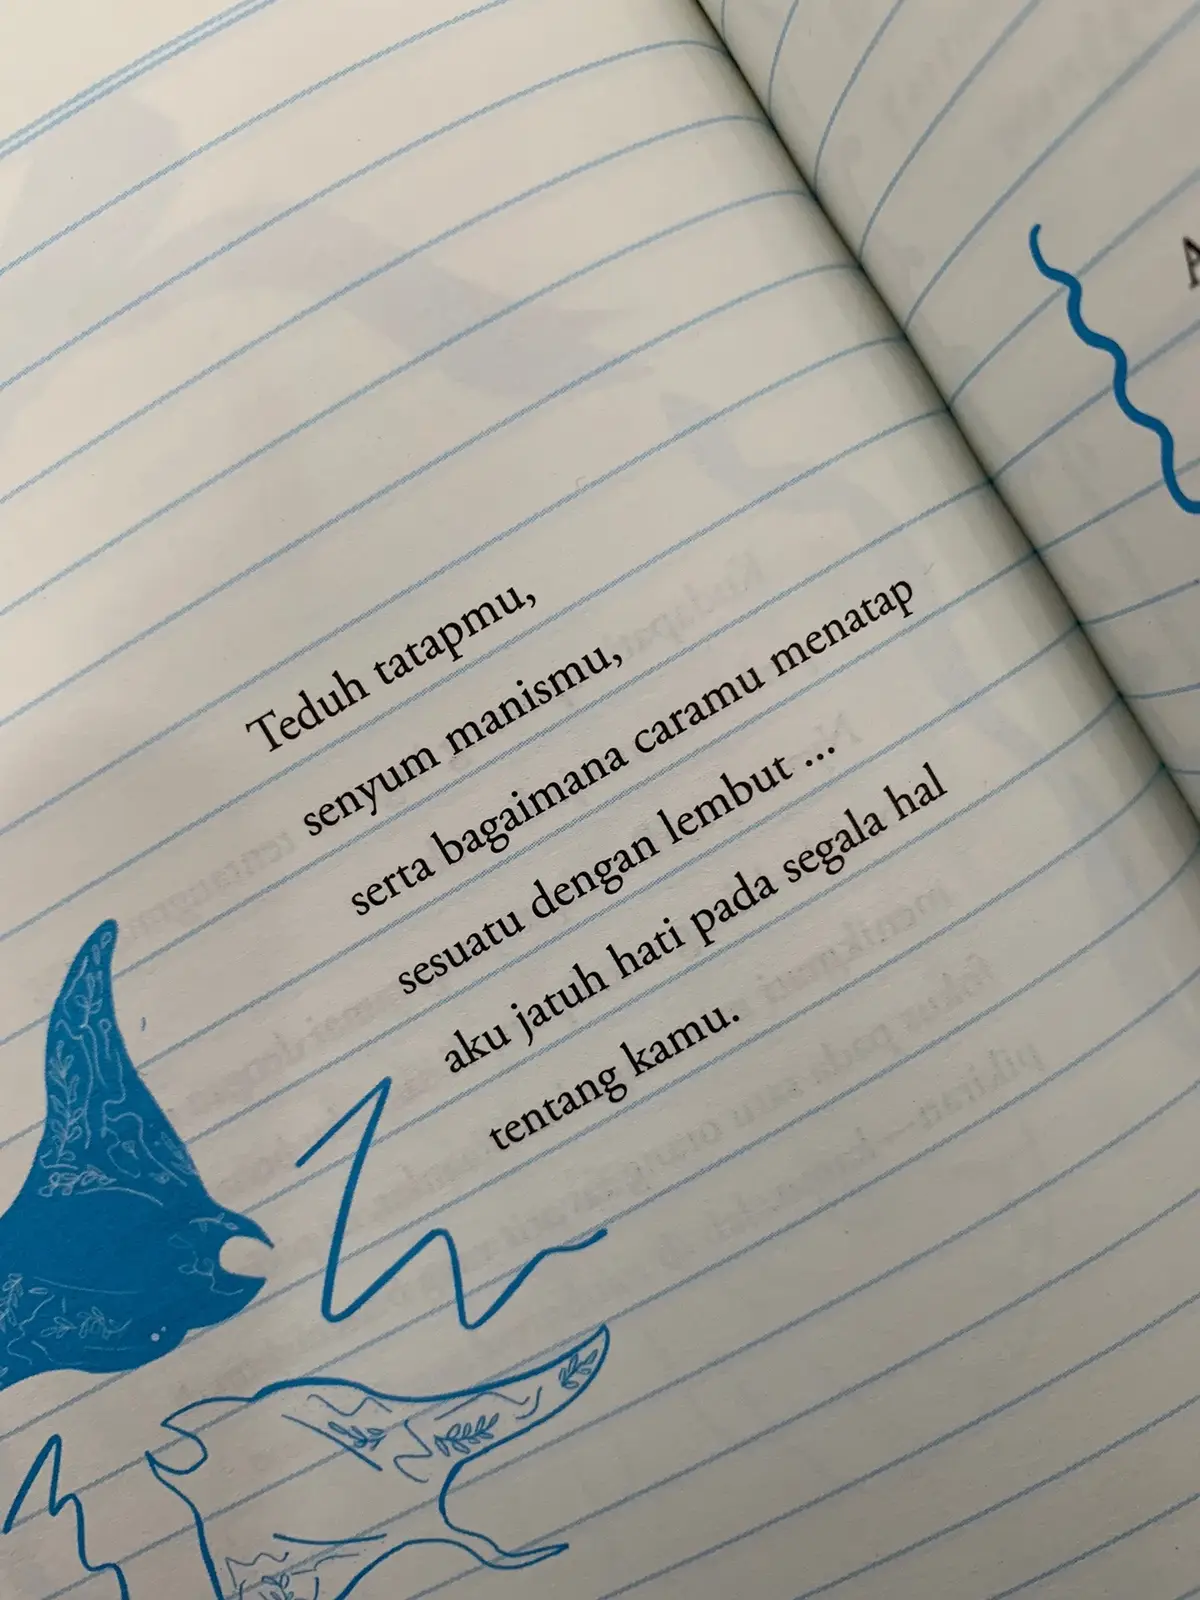 Teduh tatapmu,
senyum manismu,
serta bagaimana caramu menatap
sesuatu dengan lembut ...
aku jatuh hati pada segala hal
tentang kamu.
A